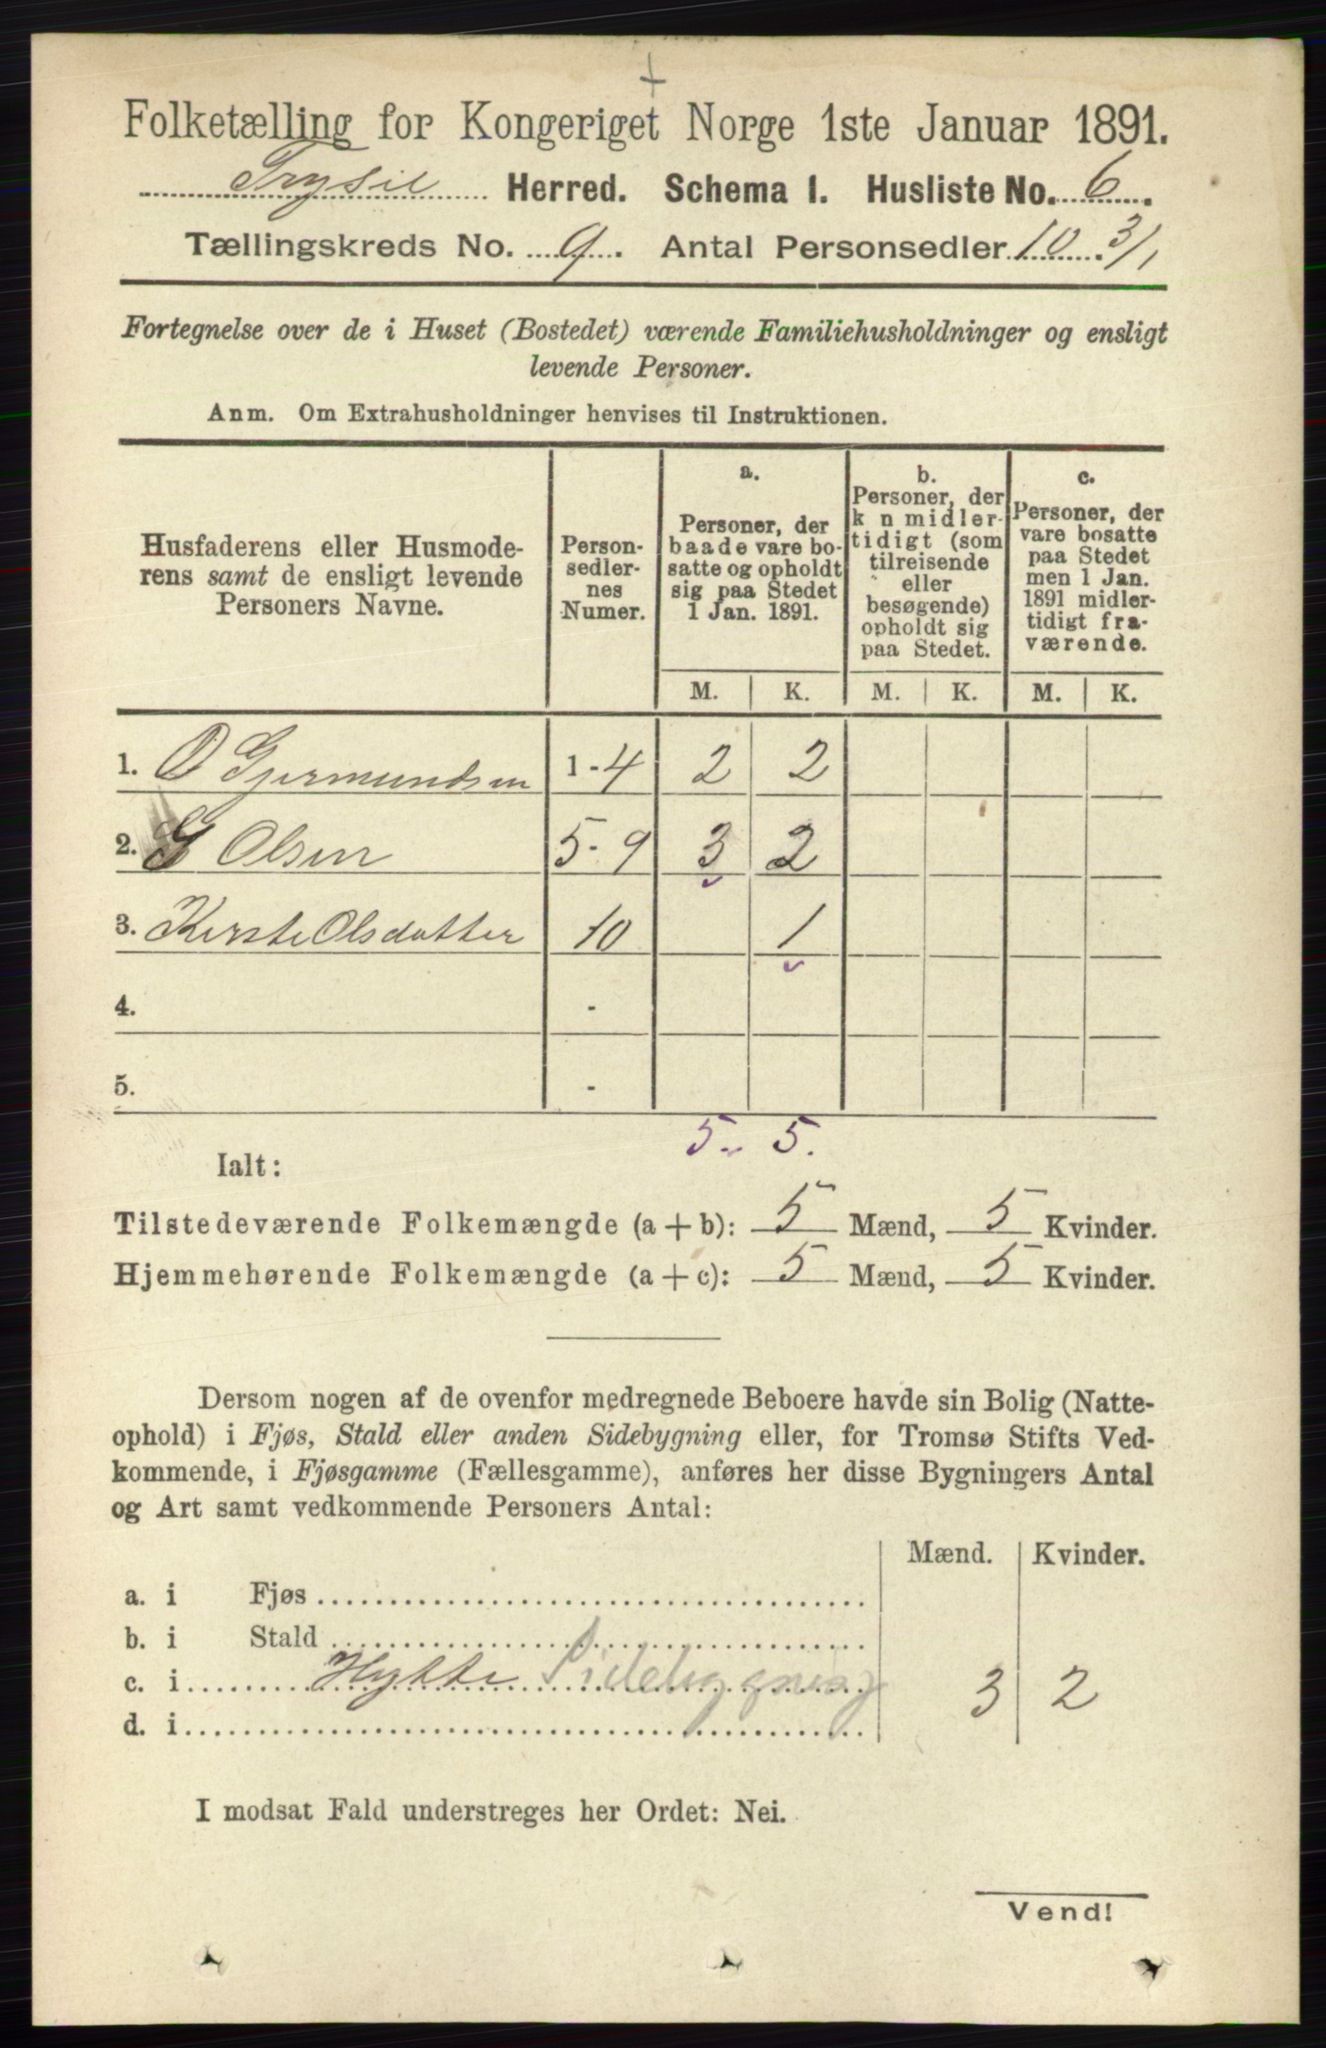 Folketælling for Kongeriget Norge 1ste Januar 1891.
Trysil Herred. Schema I. Husliste No. 6.
Tællingskreds No. 9. Antal Personsedler 10. 3/1
Fortegnelse over de i Huset (Bostedet) værende Familiehusholdninger og ensligt
levende Personer.
Anm. Om Extrahusholdninger henvises til Instruktionen.
Husfaderens eller Husmode-
rens samt de ensligt levende
Personers Navne.
Person-
sedler-
nes
Numer.
a.
Personer, der
baade vare bo-
satte og opholdt
sig paa Stedet
1 Jan. 1891.
b.
Personer, der
k n midler-
tidigt (som
tilreisende
eller
besøgende)
opholdt sig
paa Stedet.
c.
Personer, der
vare bosatte
paa Stedet
men 1 Jan.
1891 midler-
tidigt fra-
værende.
M. K. M. K. M. K.
1. O Gjermundsen 1-4 2 2
2. G Olsen 5-9 3 2
3. Kerste Olsdatter 10 1
4. -
5. -
5. 5.
Ialt:
Tilstedeværende Folkemængde (a + b): 5 Mænd, 5 Kvinder.
Hjemmehørende Folkemængde (a + c): 5 Mænd, 5 Kvinder.
Dersom nogen af de ovenfor medregnede Beboere havde sin Bolig (Natte-
ophold) i Fjøs, Stald eller anden Sidebygning eller, for Tromsø Stifts Ved-
kommende, i Fjøsgamme (Fællesgamme), anføres her disse Bygningers Antal
og Art samt vedkommende Personers Antal:
Mænd. Kvinder.
a. i Fjøs
b. i Stald
c. i Hytte Sidebygning 3 2
d. i
I modsat Fald understreges her Ordet: Nei.
Vend!